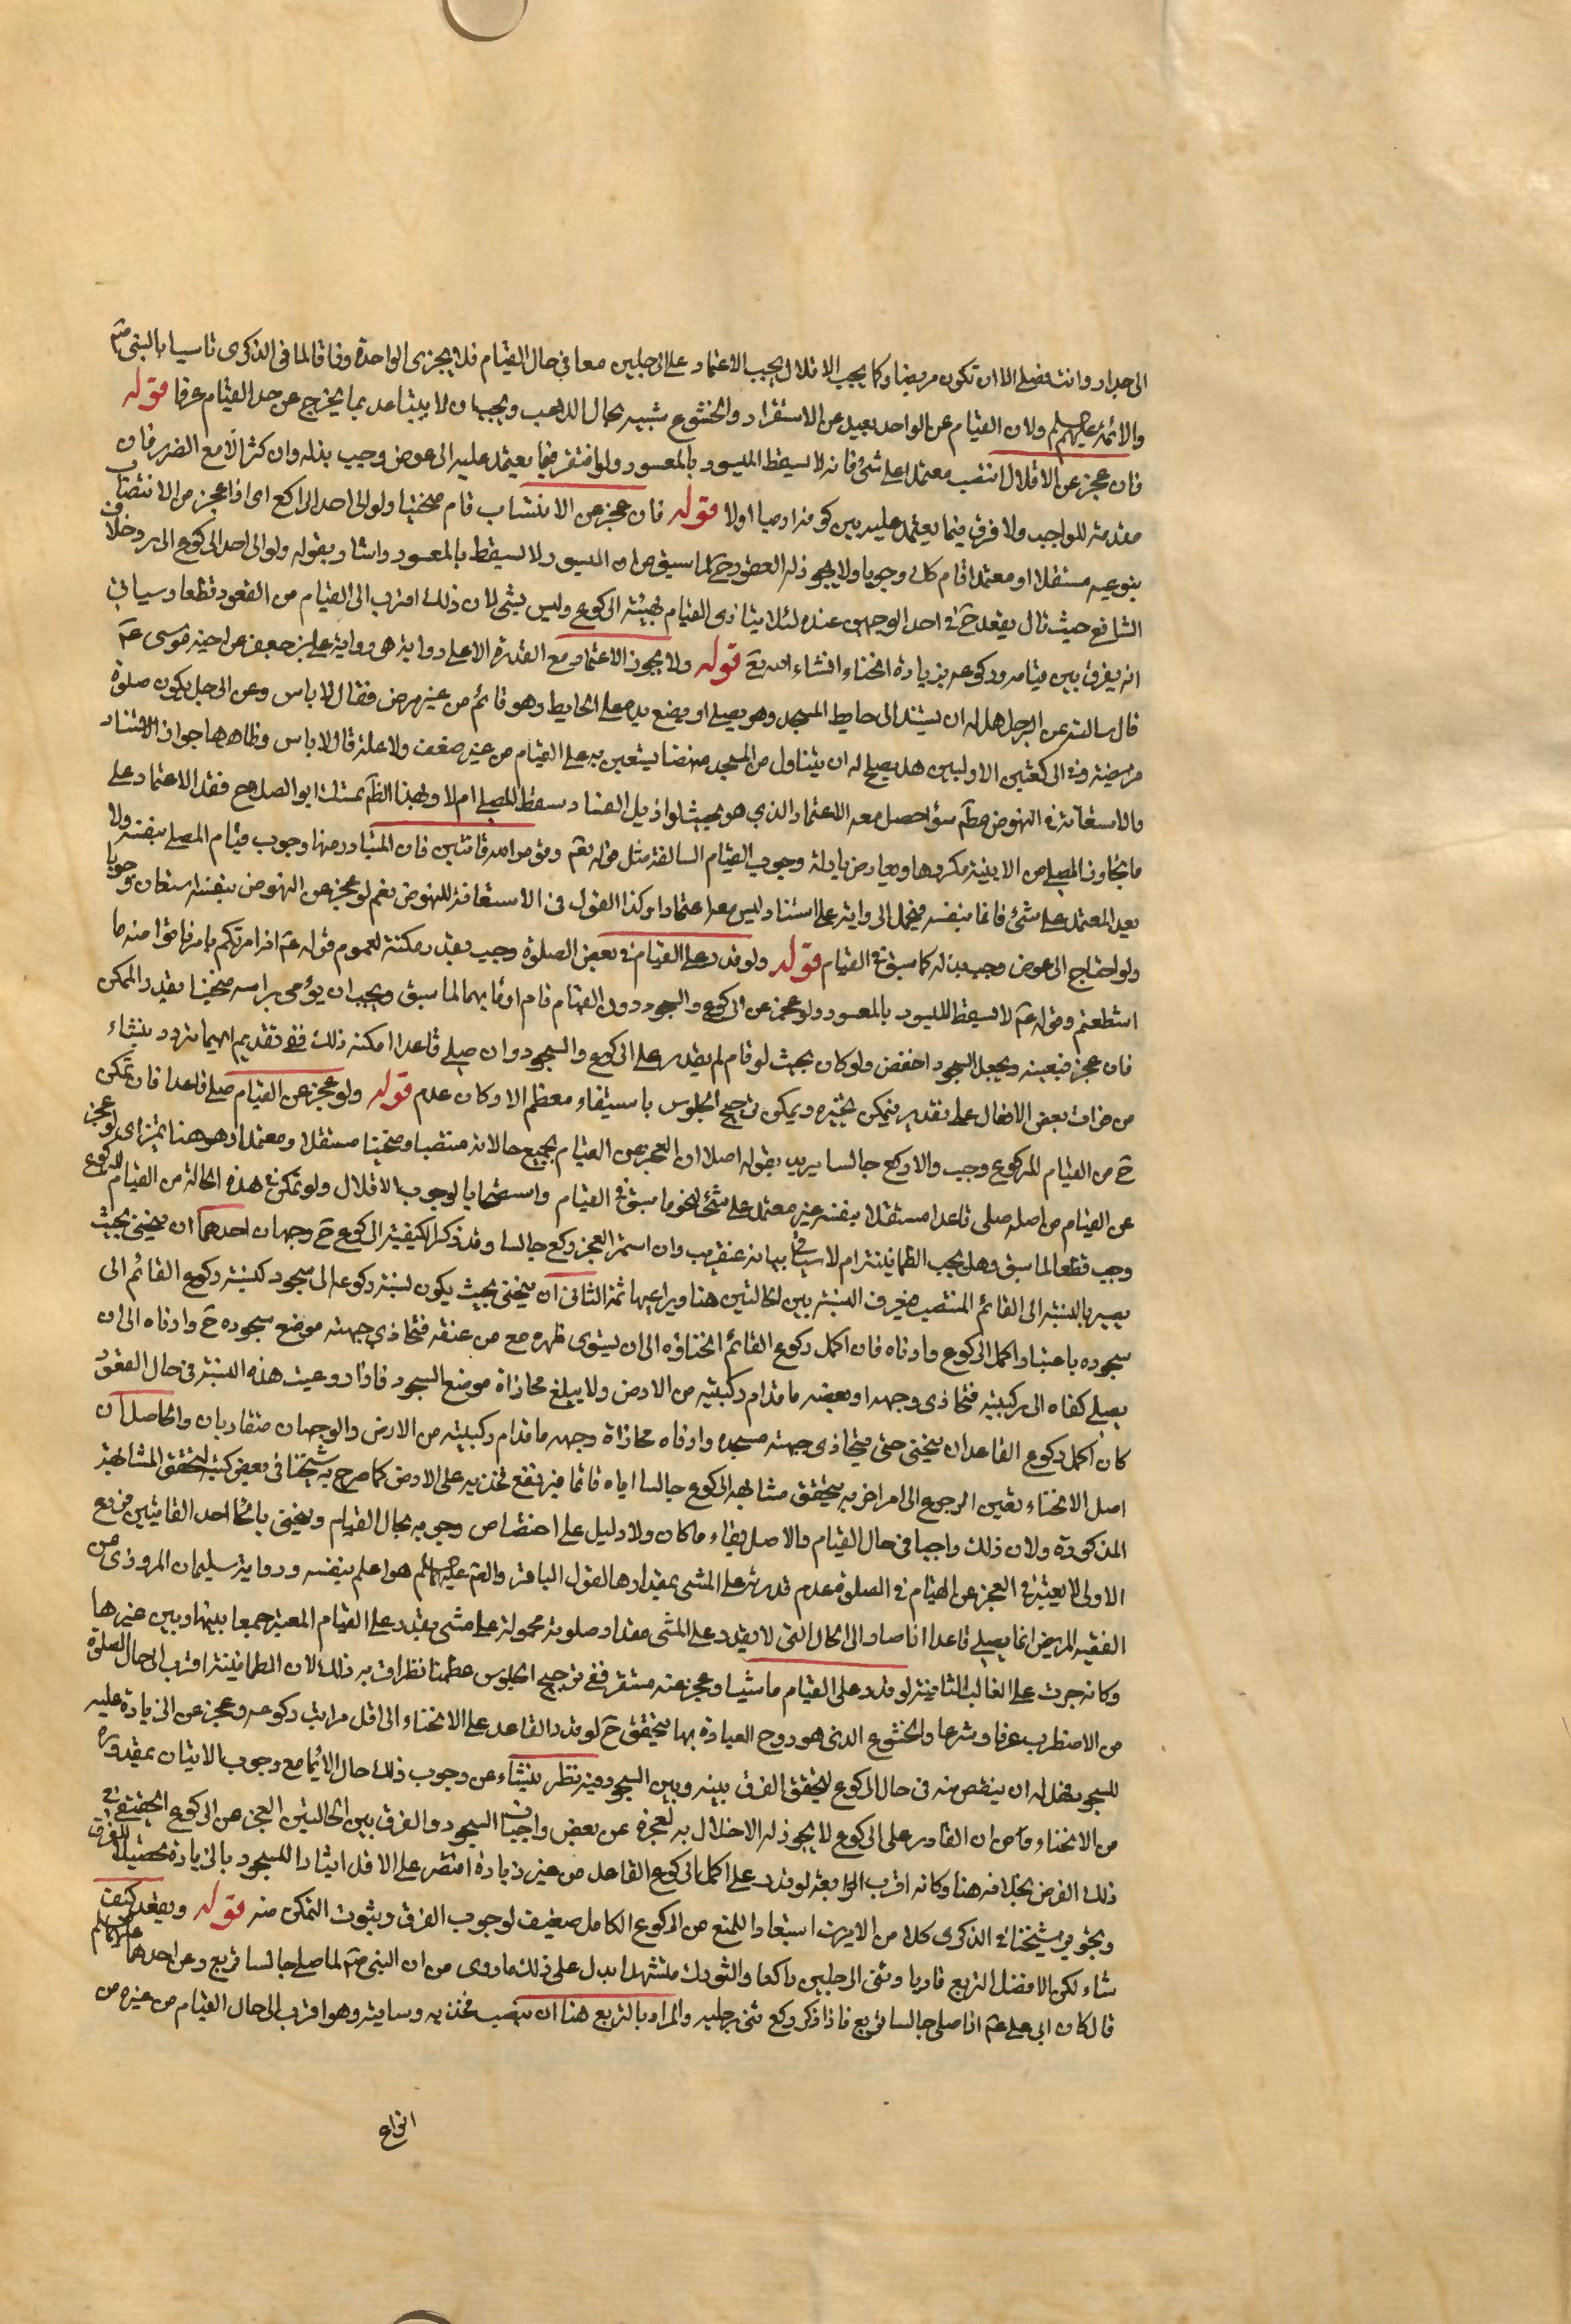 الى جدار وانت تصلى الا ان تكون مريضا وكما يجب الاقلال يجب الاعتماد على الرجلين معا في حال القيام فلا يجزى الواحدة وفاقا لما في الذكرى تاسيا بالنبى صم
والائمة عليهم السلم ولان القيام على الواحد بعيد عن الاستقرار والخشوع شبيه بحال اللاعب ويجب ان لا يتباعد بما يخرج عن حد القيام عرفا قوله
فان عجز عن الاقلال انتصب معتمدا على شئ فانه لا يسقط الميسور بالمعسور ولو افتقر فيما يعتمد عليه الى عوض وجب بذله وان كثر الا مع الضرر فان
مقدمة للواجب ولا فرق فيما يعتمد عليه بين كونه ادميا اولا قوله فان عجز عن الانتصاب قام منحنيا ولو الى احد الراكع اى اذا عجز من الانتصاب
بنوعيه مستقلا او معتمدا قام كك وجوبا ولا يجوز له القعود ح لما سبق من ان الميسور لا يسقط بالمعسور واشار بقوله ولو الى احد الركوع الى رد خلاف
الشافع حيث قال يقعد ح في احد الوجهين عنده لئلا يتادى القيام بهيئة الركوع وليس بشئ لان ذلك اقرب الى القيام من القعود قطعا وسياتي
انه يفرق بين قيامه وركوعه بزيادة انحناء انشاء الله تع قوله ولا يجوز الاعتماد مع القدرة الا على رواية هي رواية على بن جعفر عن اخيه موسى عم
قال سالته عن الرجل هل له ان يستند الى حايط المسجد وهو يصلى او يضع يده على الحايط وهو قائم من غير مرض فقال لا باس وعن الرجل يكون صلوة
مريضة وفى الركعتين الاوليين هل يصلح له ان يتناول من المسجد منهضا يستعين به على القيام من غير ضعف ولا علة قال لا باس وظاهرها جواز الاستناد
والاستعانة في النهوض مطم سواء حصل معه الاعتماد الذي هو بحيث لو ازيل السناد سقط المصلى ام لا وبهذا الظم تمسك ابو الصلاح فعد الاعتماد على
ما يجاور المصلى من الابنية مكروها ويعارض بادلة وجوب القيام السالفة مثل قوله تع وقوموا لله قانتين فان المتبادر منها وجوب قيام المصلى بنفسه ولا
يعد المعتمد على شئ قائما بنفسه فيحمل الرواية على استناد ليس معه اعتماد وكذا القول في الاستعانة للنهوض نعم لو عجز عن النهوض بنفسه استعان وجوبا
ولو احتاج الى عوض وجب بذله كما سبق في القيام قوله ولو قدر على القيام في بعض الصلوة وجب بقدر مكنته لعموم قوله عم اذا امرتكم بامر فاتوا منه ما
استطعتم وقوله عم لا يسقط الميسور بالمعسور ولو عجز عن الركوع والسجود دون القيام قام اوما بهما لما سبق ويجب ان يؤمى براسه منحنيا بقدر الممكن
فان عجز فبعينه ويجعل السجود اخفض ولو كان بحيث لو قام لم يقدر على الركوع والسجود وان صلى قاعدا امكنه ذلك ففى تقديم ايهما تردد ينشاء
من فوات بعض الافعال على تقدير فيمكن تخيره ويمكن ترجيح الجلوس باستيفاء معظم الاركان عدم قوله ولو عجز عن القيام صلى قاعدا فان تمكن
ح من القيام للركوع وجب والا ركع جالسا يريد بقوله اصلا ان العجز عن القيام بجميع حالاته منتصبا ومنحنيا مستقلا ومعتمدا وهو هنا تميز اى لو عجز
عن القيام من اصله صلى قاعدا مستقلا بنفسه غير معتمد على شئ لنحو ما سبق في القيام واستصحابا لوجوب الاقلال ولو تمكن في هذه الحالة من القيام للركوع
وجب قطعا لما سبق وهل يجب الطمانينة ام لا سياتي بيانه عنقريب وان استمر العجز وركع جالسا وقد ذكر الكيفية الركوع ح وجهان احدهما ان ينحنى بحيث
يصير بالنسبة الى القائم المنتصب فيعرف النسبة بين الحالتين هنا ويراعيها ثمة الثانى ان ينحنى بحيث يكون نسبة ركوعه الى سجوده كنسبة ركوع القائم الى
سجوده باعتبار اكمل الركوع وادناه فان اكمل ركوع القائم انحناؤه الى ان يستوى ظهره مع من عنقه فتحاذي جبهته موضع سجوده ح وادناه الى ان
يصل كفاه الى ركبتيه فتحاذى وجهه او بعضه ما قدام ركبتيه من الارض ولا يبلغ محاذاة موضع السجود فاذا روعيت هذه النسبة في حال القعود
كان اكمل ركوع القاعد ان ينحنى حتى يحاذى جبهته مسجده وادناه محاذاة وجهه ما قدام ركبتيه من الارض والوجهان متقاربان والحاصل ان
اصل الانحناء تعين الرجوع الى امر اخر به يتحقق مشابهة الركوع جالسا اياه قائما فيرتفع فخذيه على الارض كما صرح به شيخنا في بعض كتبه لتحقق المشابهة
المذكورة ولان ذلك واجبا في حال القيام والاصل بقاء ما كان ولا دليل على اختصاص وجوبه بحال القيام وينحنى بانحاء احد القائمين فروع
الاولى لا يعتبر في العجز عن القيام في الصلوة عدم قدرته على المشى بمقدارها لقول الباقر والصم عليهم السلم هو اعلم بنفسه ورواية سليمان المروزى عن
الفقيه المريض انما يصلى قاعدا اذا صار الى الحال التى لا يقدر على المشى مقدار صلوته محمولة على مشى يقدر على القيام المعتبر جمعا بينها وبين غيرها
وكانه جرت على الغالب الثانية لو قدر على القيام ماشيا وعجز عنه مستقر ففي ترجيح الجلوس مطمئنا نظر اقربه ذلك لان الطمانينة اقرب الى حال الصلوة
من الاضطراب عرفا وشرعا والخشوع الذى هو روح العبادة بها يتحقق ح لو قدر القاعد على الانحناء الى اقل مراتب ركوعه وعجز عن الزيادة عليه
للسجود فهل له ان ينقص منه في حال الركوع ليتحقق الفرق بينه وبين السجود فيه نظر ينشاء عن وجوب ذلك حال الايماء مع وجوب الاتيان بمقدوره
من الانحناء ومن ان القادر على الركوع لا يجوز له الاخلال به لعجزه عن بعض واجبات السجود والفرق بين الحالتين العجز عن الركوع الحقيقى في
ذلك الفرض بخلافه هنا وكانه اقرب الرابعة لو قدر على اكمل ركوع القاعد من غير زيادة اقتصر على الاقل ايثارا للسجود بالزيادة تحصيلا للفرق
وبجوز شيخنا في الذكرى كلا من الامرين استبعادا للمنع من الركوع الكامل ضعيف لوجوب الفرق وبثبوت التمكن منه قوله ويقعد كيف
شاء لكن الافضل التربع قاريا وثنى الرجلين راكعا والتورك متشهدا يدل على ذلك ما روى من ان النبى صم لما صلى جالسا تربع وعن احدهما عليهما السلم
قال كان ابى على عم اذا صلى جالسا تربع فاذا ذكر ركع ثنى رجليه والمراد بالتربع هنا ان ينصب فخذيه وساقيه وهو اقرب الى حال القيام من غيره من
انواع